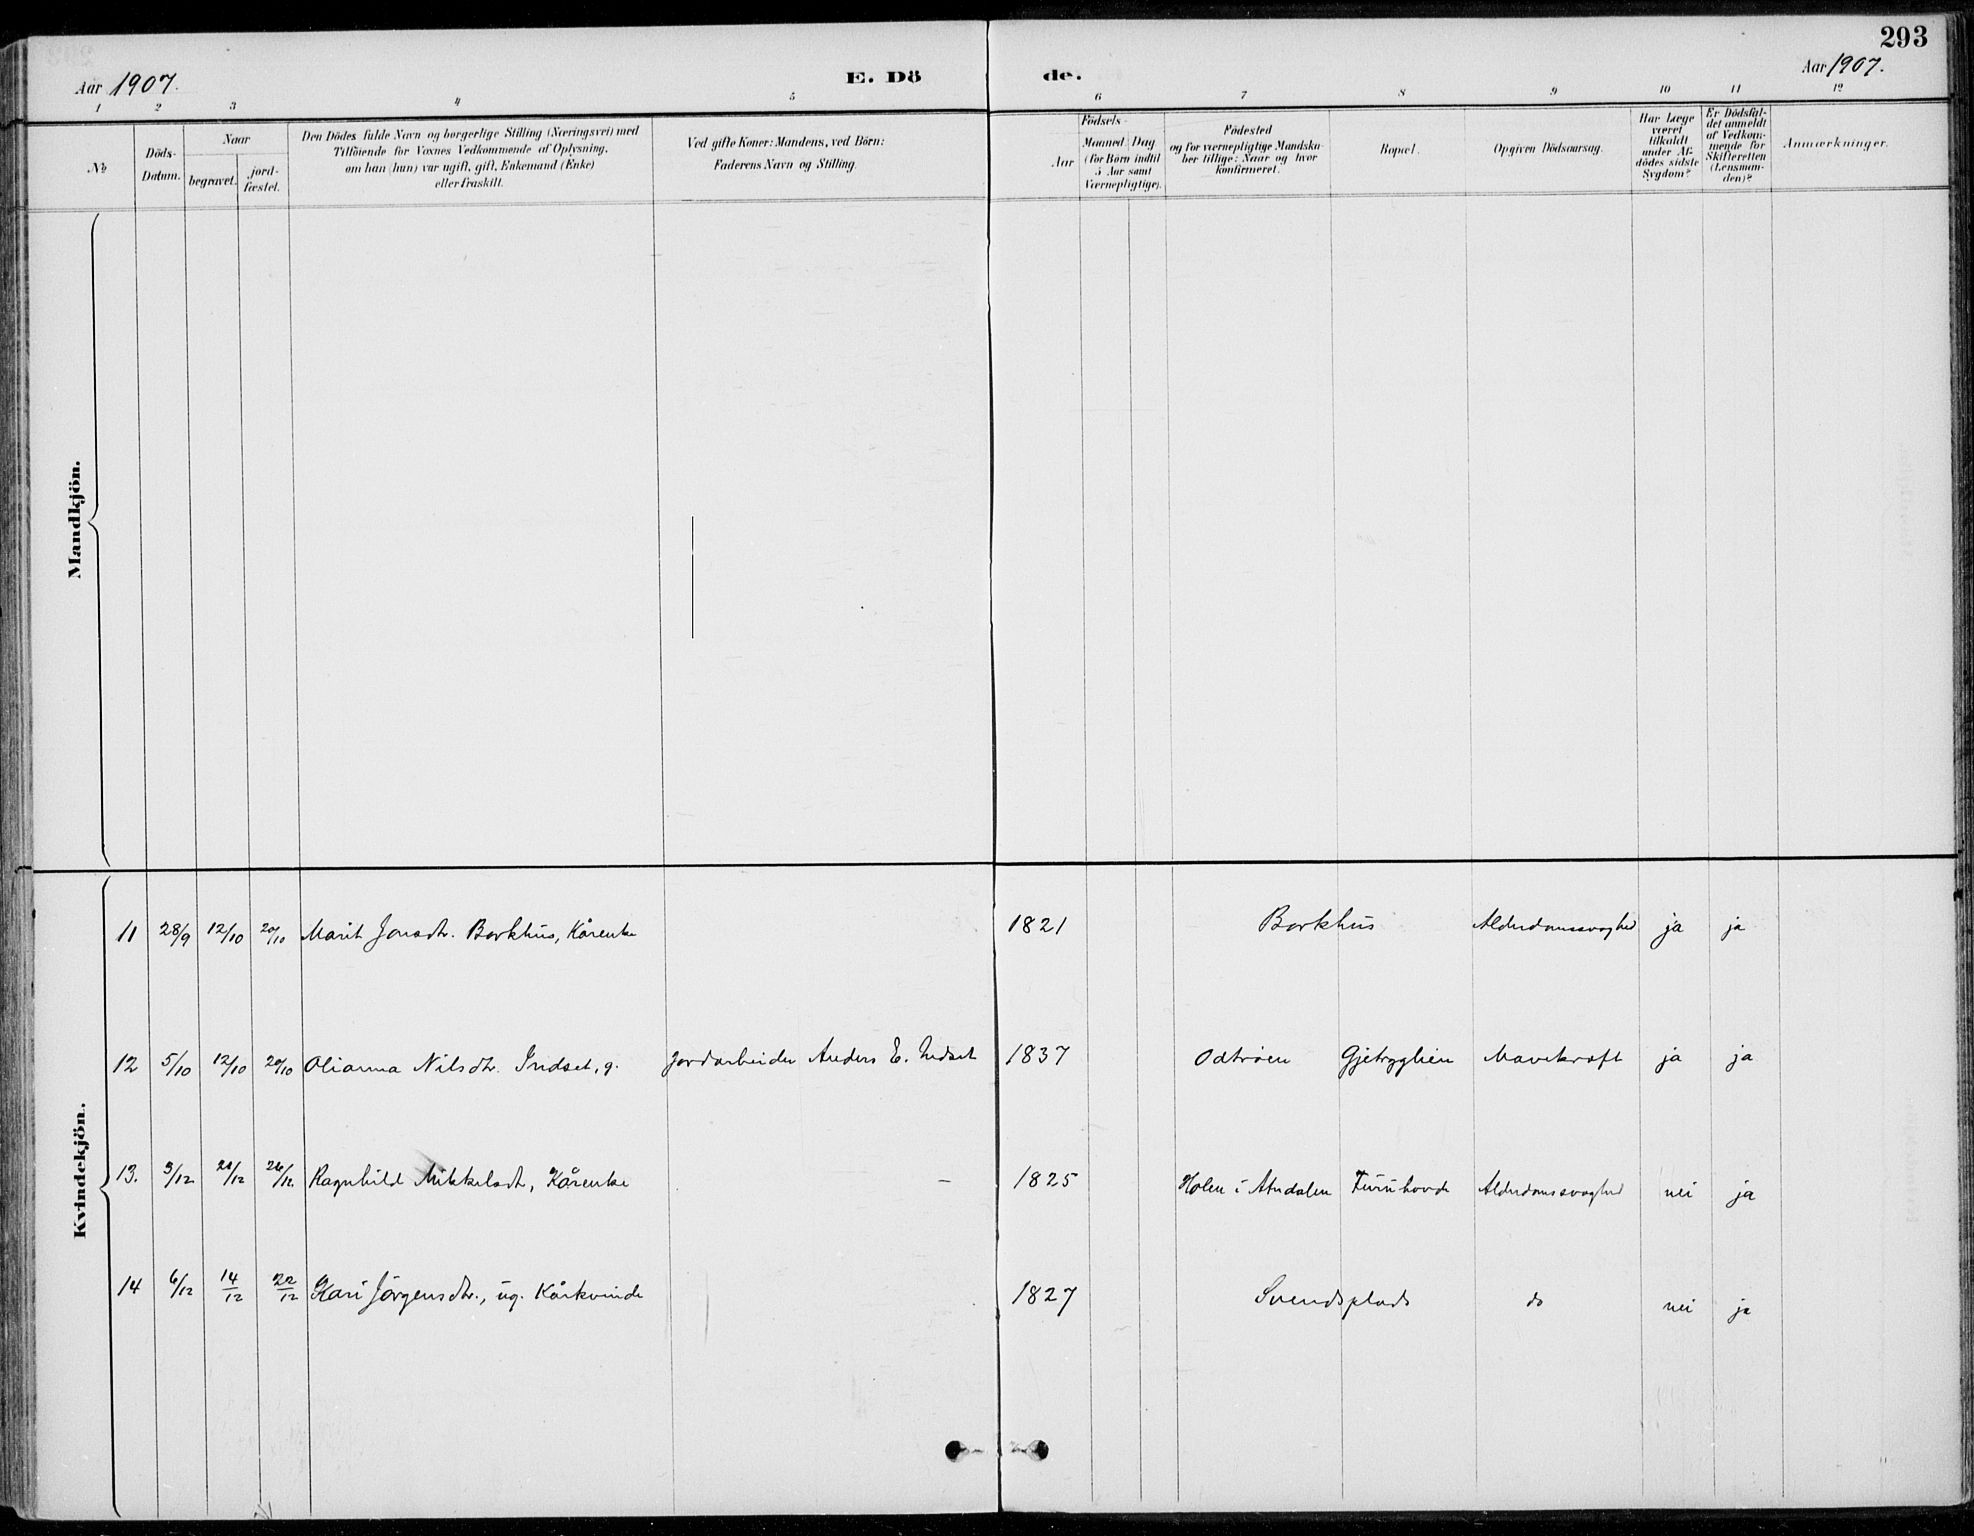 293
Aar 1907.
E. Dö
de.
Aar 1907.
1 2 3 4 5 6 7 8 9 10 11 12
№
Döds-
Datum.
Naar
begravet.
jord-
fæstet.
Den Dödes fulde Navn og borgerlige Stilling (Næringsvei) med
Tilföiende for Voxnes Vedkommende af Oplysning,
om han (hun) var ugift, gift, Enkemand (Enke)
eller fraskilt.
Ved gifte Koner: Mandens, ved Börn:
Faderens Navn og Stilling.
Födsels-
Aar
Maaned Dag
(for Börn indtil
5 Aar samt
Værnepligtige).
Födested
og for værnepligtige Mandska-
ber tillige: Naar og hvor
konfirmeret.
Bopæl.
Opgiven Dödsaarsag.
Har Læge
været
tilkaldt
under Af-
dödes sidste
Sygdom?
Er Dödsfal-
det anmeldt
af Vedkom-
mende for
Skifteretten
(Lensman-
den)?
Anmærkninger.
Mandkjön.
Kvindekjön.
11 28/9 12/10 20/10 Marit Jonsdtr. Borkhus, Kårenke 1821 Borkhus Alderdomssvaghed ja ja
12 5/10 12/10 20/10 Olianna Nilsdtr. Indset, g. Jordarbeider Anders E. Indset 1837 Odtröen Gjetrygglien Mavekræft ja ja
13. 3/12 21/12 26/12 Ragnhild Mikkelsdt, Kårenke — 1825 Holen i Atndalen Furuhovde Alderdomssvaghed nei ja
14 6/12 14/12 22/12 Kari Jörgensdtr., ug. Kårkvinde 1827 Svendsplads do nei ja